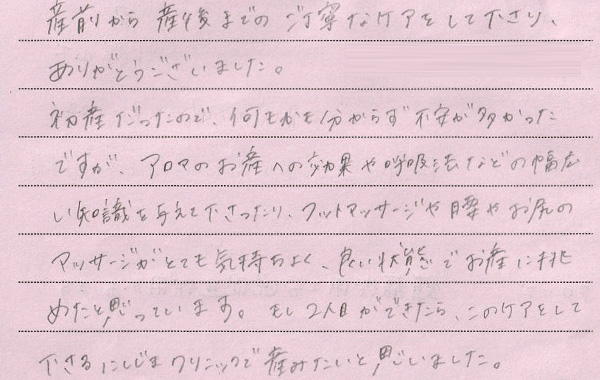 産前から産後までのご丁寧なケアをして下さり、
ありがとうございました。
初産だったので、何もかも分からず不安が多かった
ですが、アロマのお産への効果や呼吸法などの幅広
い知識を与えて下さったり、フットマッサージや腰やお尻の
マッサージがとても気持ちよく、良い状態でお産に挑
めたと思っています。もし2人目ができたら、このケアをして
下さるにしじまクリニックで産みたいと思いました。